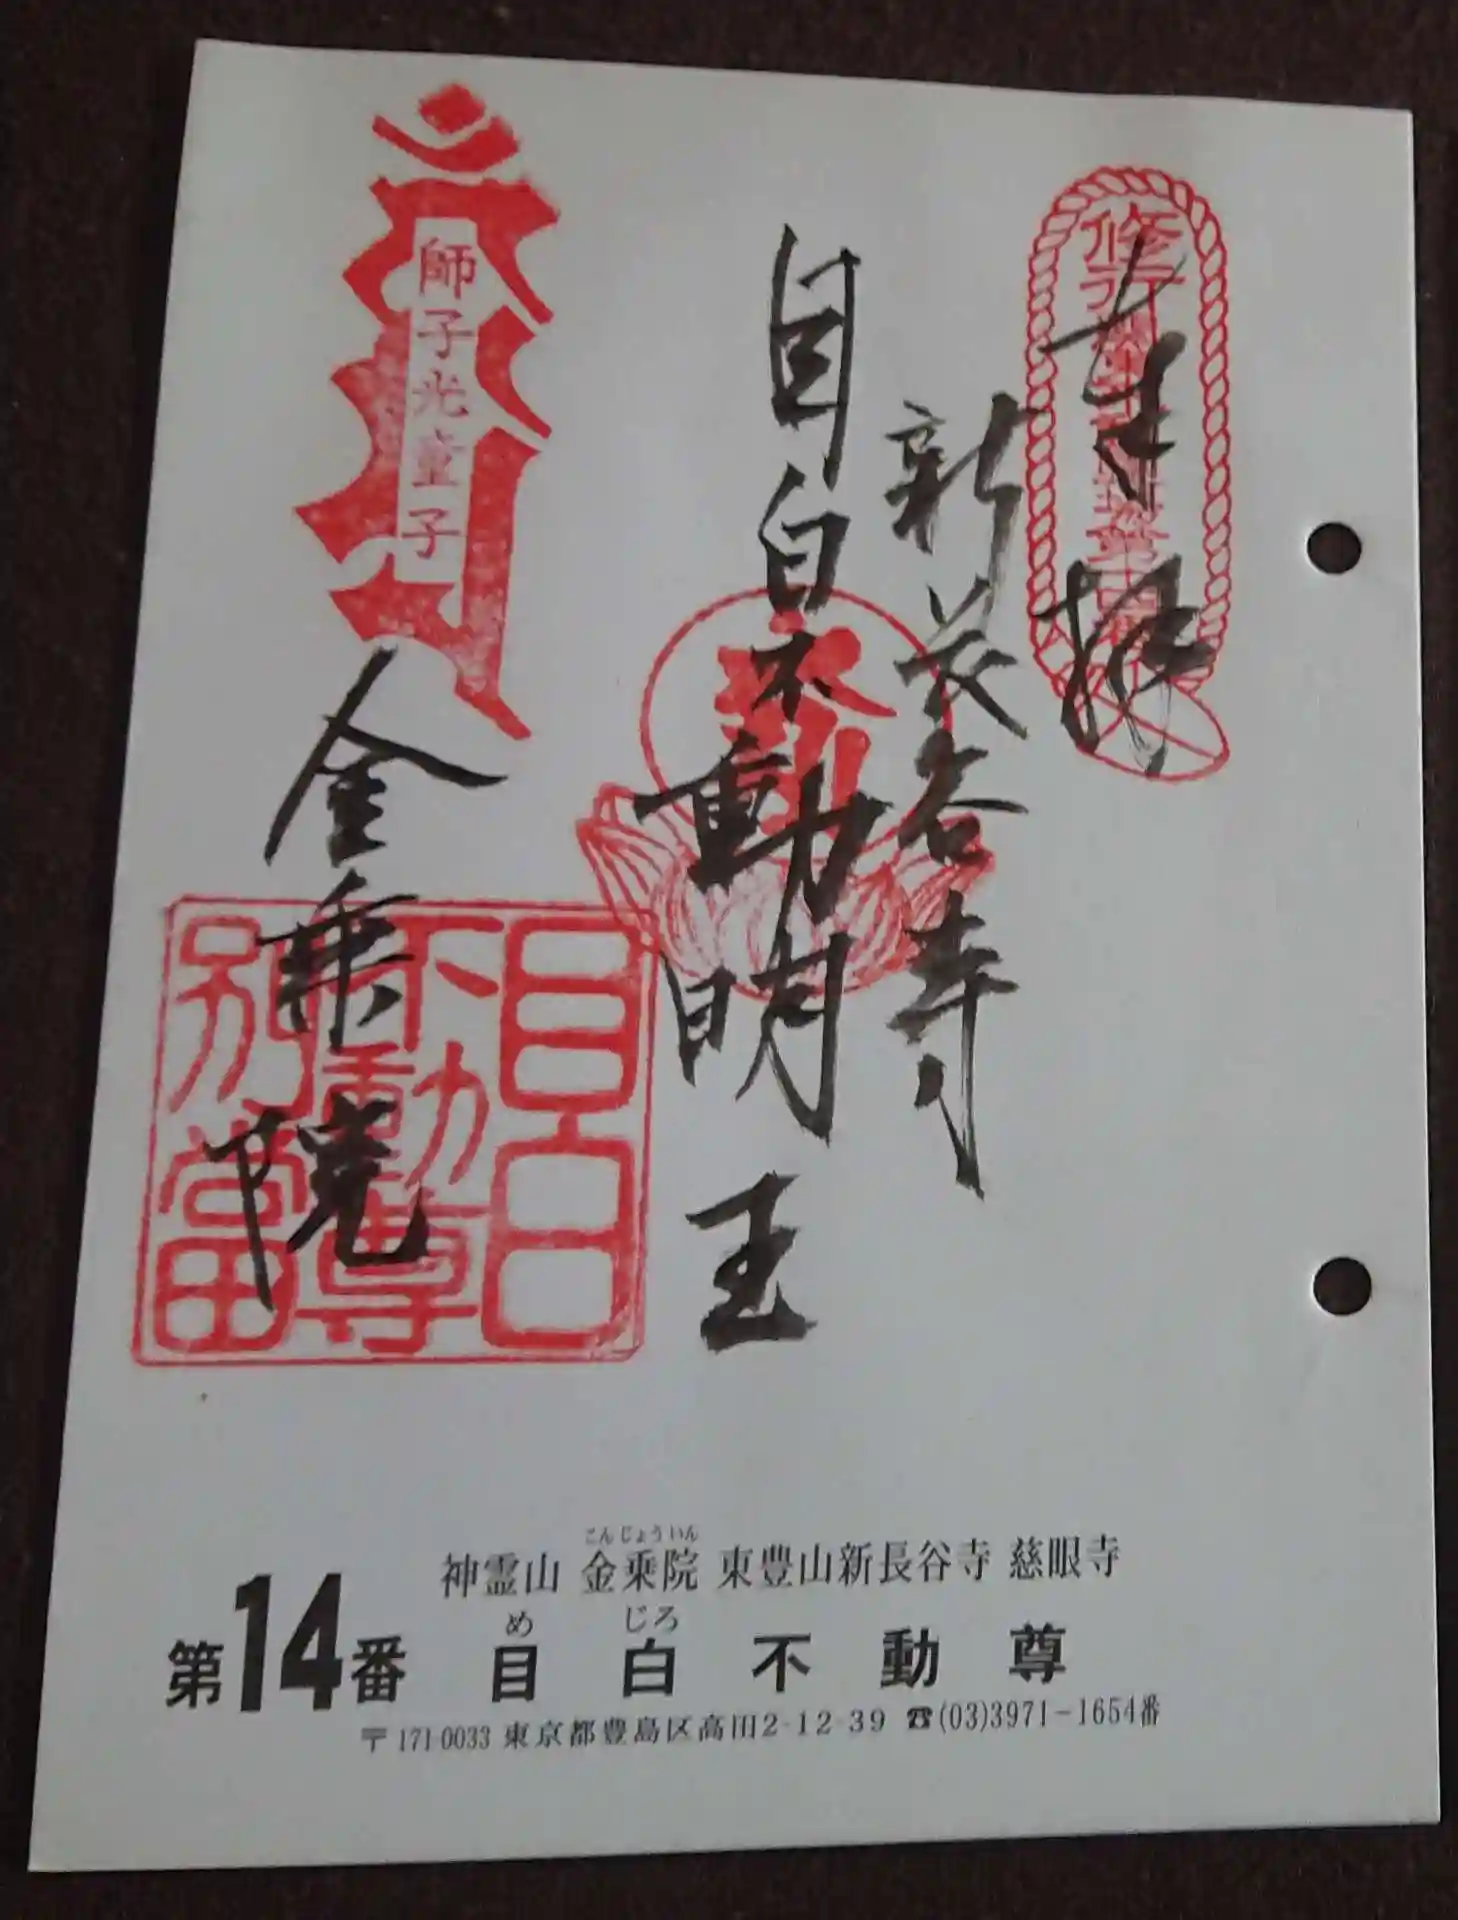 奉拝
新長谷寺
目白不動明王
金乗院
師子光童子
目白
不動尊
別當
こんじょういん
神霊山 金乗院 東豊山新長谷寺 慈眼寺
め じろ
第14番 目白不動尊
〒171-0033 東京都豊島区高田2-12-39 ☎(03)3971-1654番